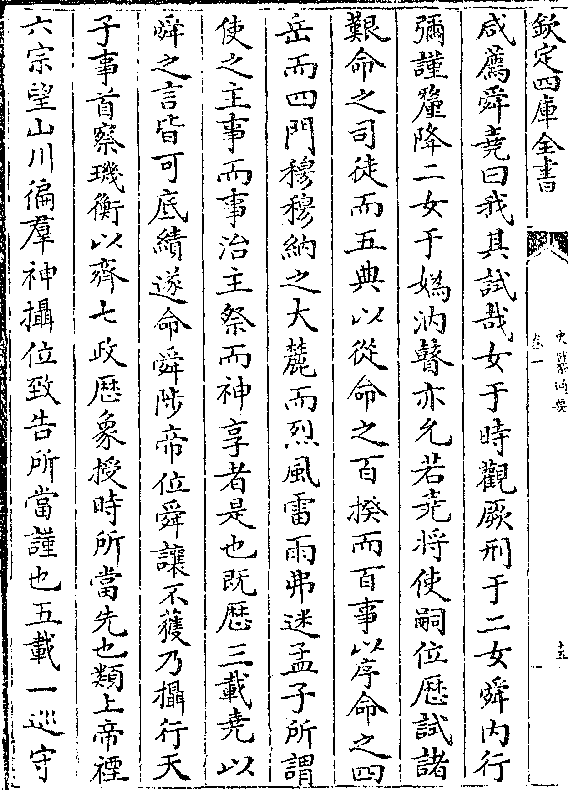 欽定四庫全書
史纂通要
卷一
十五
咸薦舜堯曰我其試哉女于時觀厥刑于二女舜内行
彌謹釐降二女于媯汭瞽亦允若堯将使嗣位歴試諸
艱命之司徒而五典以從命之百揆而百事以序命之四
岳而四門穆穆納之大麓而烈風雷雨弗迷孟子所謂
使之主事而事治主祭而神享者是也既歴三載堯以
舜之言皆可底績遂命舜陟帝位舜讓不獲乃攝行天
子事首察璣衡以齊七政歴象授時所當先也類上帝禋
六宗望山川徧羣神攝位致告所當謹也五載一巡守